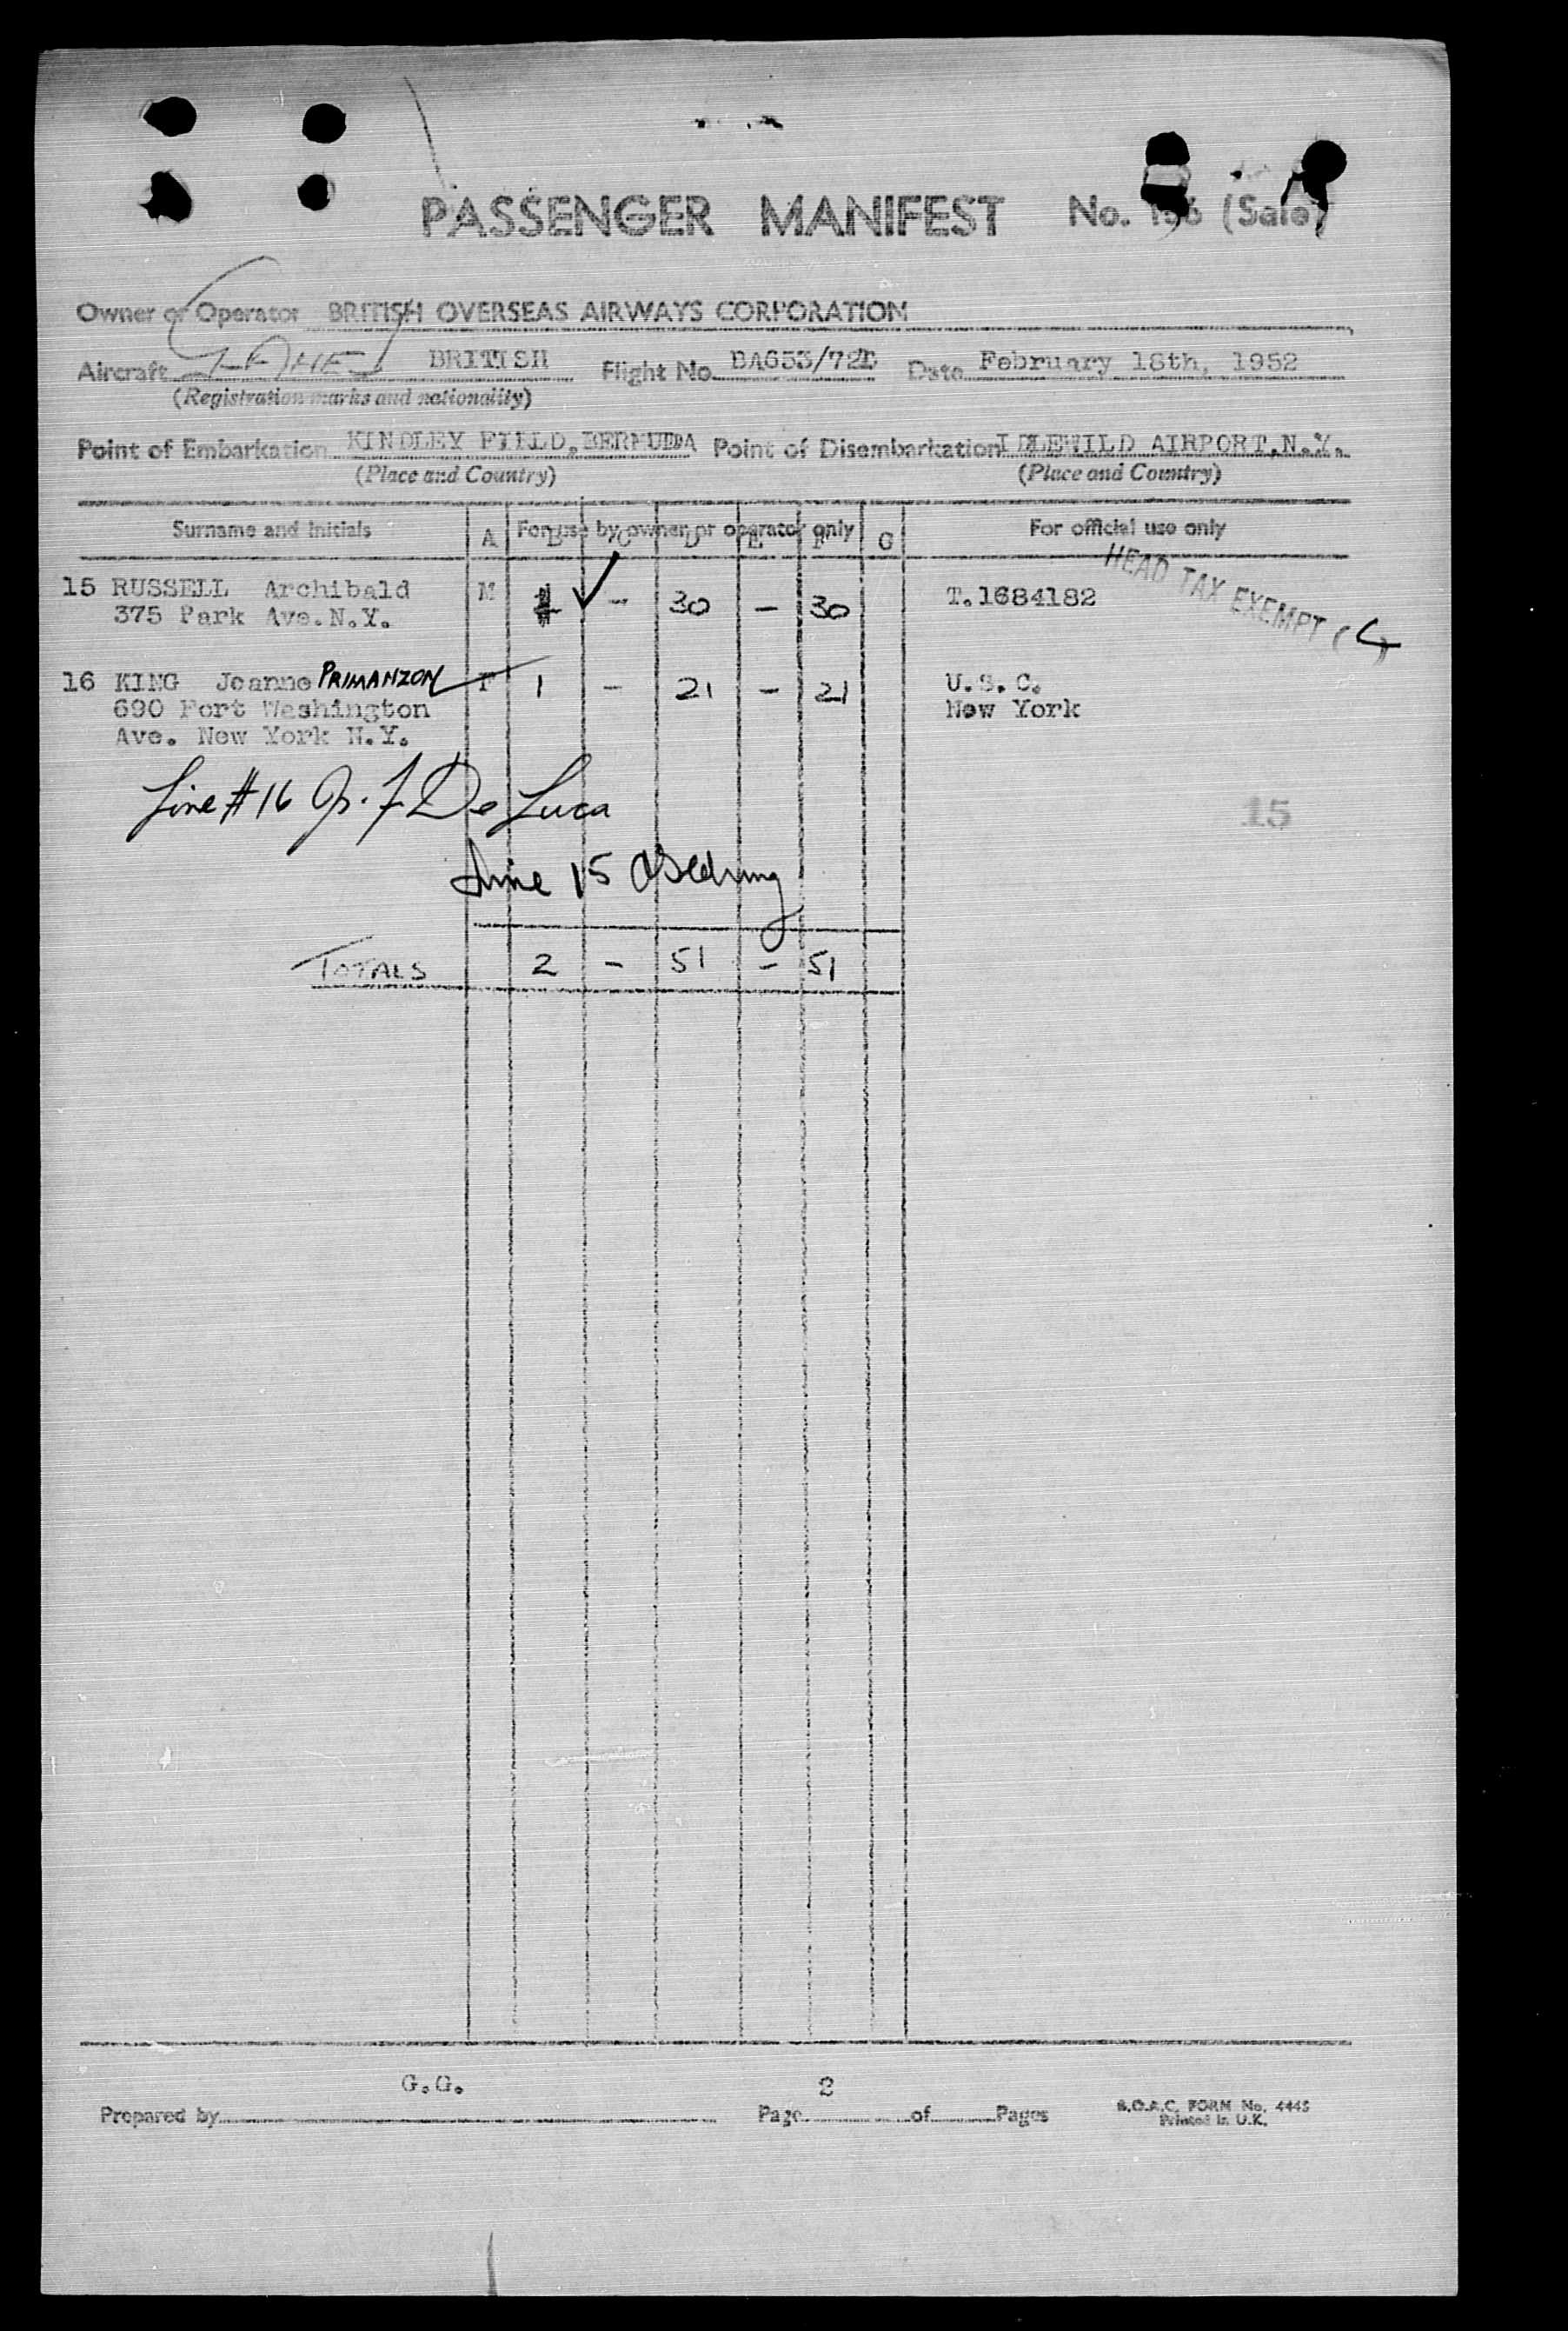 PASSENGER MANIFEST No. (Sale)
Owner or Operator BRITISH OVERSEAS AIRWAYS CORPORATION
Aircraft BRITISH Flight No. BA653/72 Date February 18th, 1952
(Registration marks and nationality)
Point of Embarkation KINDLEY FIELD, BERMUDA Point of Disembarkation IDLEWILD AIRPORT, N.Y.
(Place and Country) (Place and Country)
Surname and Initials A For use by owner or operator only G For official use only
B C D E F
HEAD TAX EXEMPT (4)
15 RUSSELL Archibald M 1 - 30 - 30 T.1684182
375 Park Ave.N.Y.
16 KING Joanne PRIMANZON F 1 - 21 - 21 U.S.C.
690 Fort Washington New York
Ave. New York N.Y.
Line #16 De Luca
15
Line 15
TOTALS 2 - 51 - 51
G.G. 2
Prepared by Page of Pages B.O.A.C. FORM No. 4445
Printed in U.K.